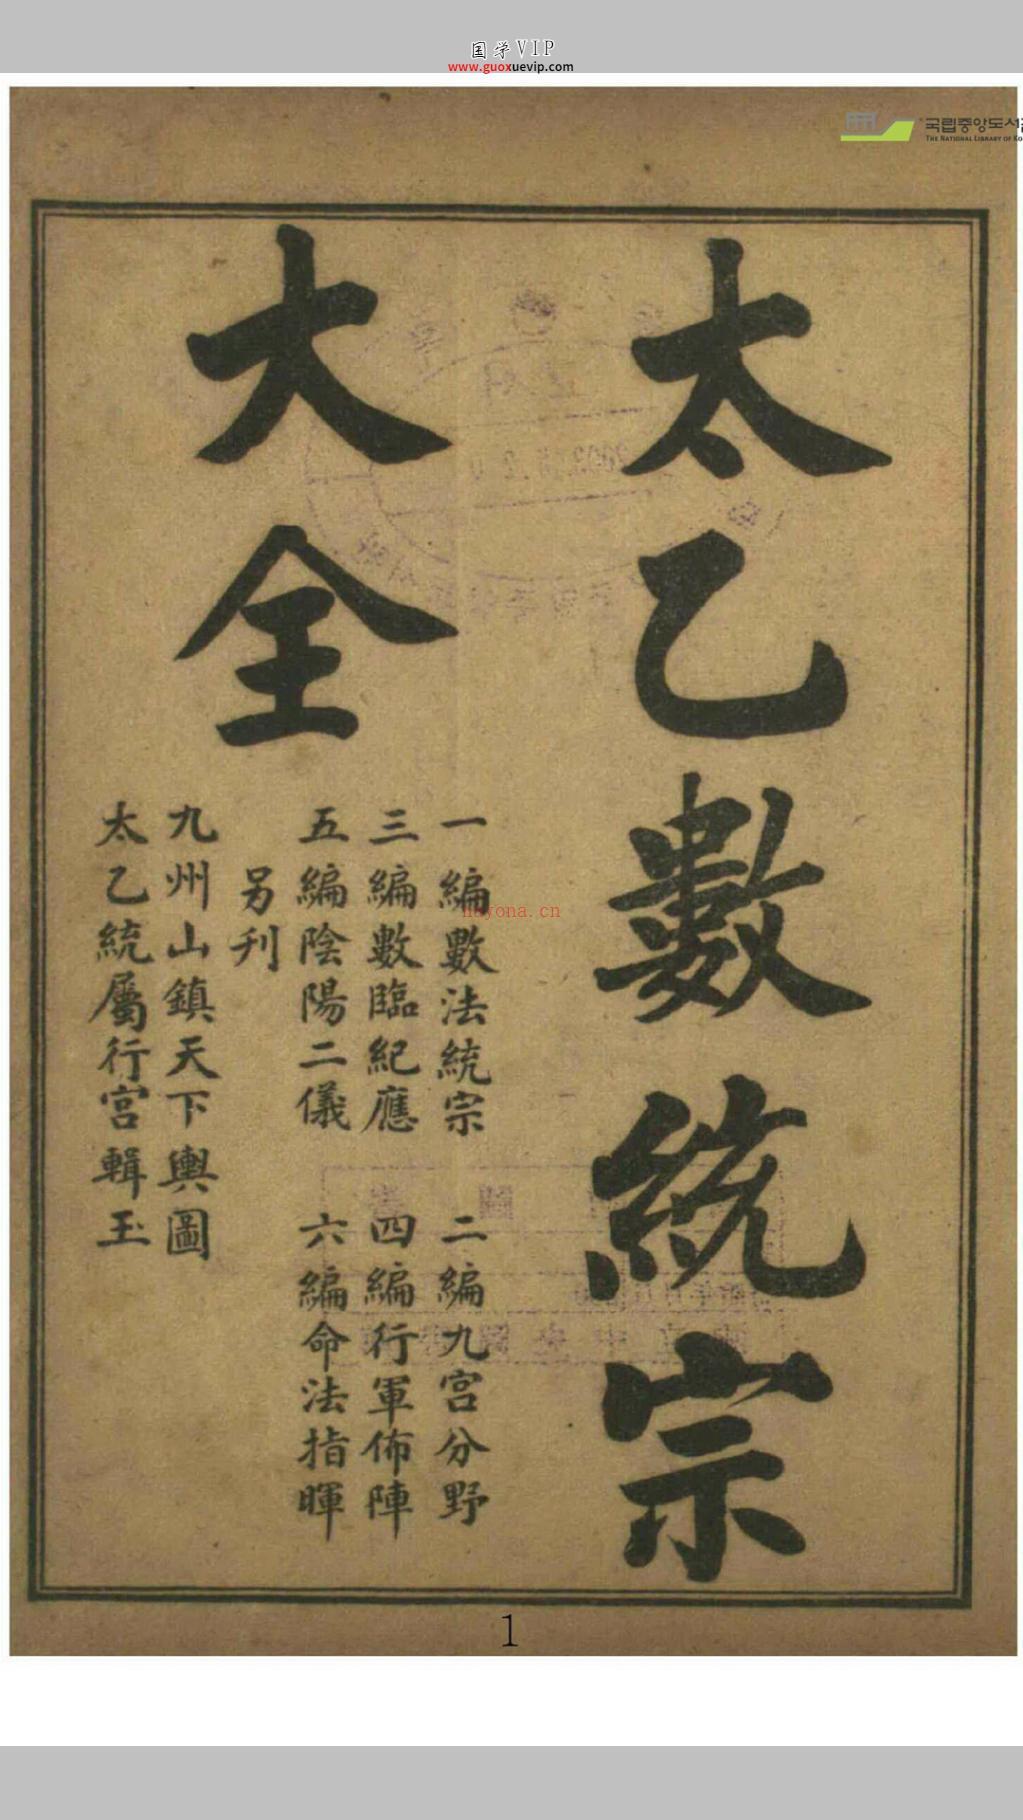 国学VIP
www.guoxuevip.com
국립중앙도서관
THE NATIONAL LIBRARY OF KO
太乙數統宗
大全
一編數法統宗 二編九宮分野
三編數臨紀應 四編行軍佈陣
五編陰陽二儀 六編命法指暉
另刋
九州山鎮天下輿圖
太乙統屬行宮輯玉
nayona.cn
1